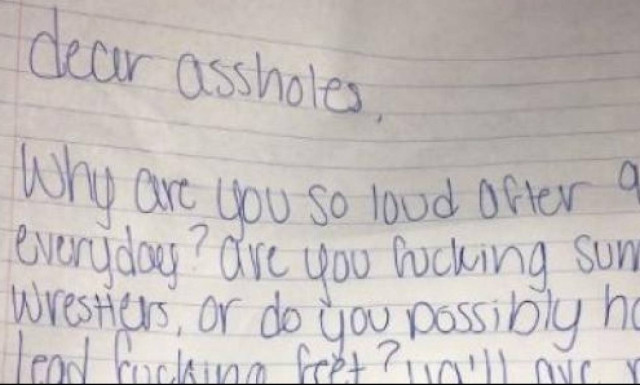 dear assholes,
Why are you so loud after
everyday? are you fucking
wrestlers, or do you possibly
lead fucking feet? ya'll are